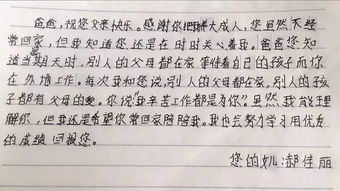 爸爸,祝您父亲快乐。感谢你把我养大成人,您虽然不经
常回家,但我知道您还是在时时关心着我。爸爸您知
道当期天时,别人的父母都在家等待着自己的孩子而你
在外地工作。每次我和您说,别人的父母都在家,别人的孩
子都有父母的爱。你说“我辛苦工作都是为你”虽然我能理
解你,但我还是希望你常回家陪陪我。我也会努力学习用优秀
的成绩回报您。
您的女儿:郝佳丽